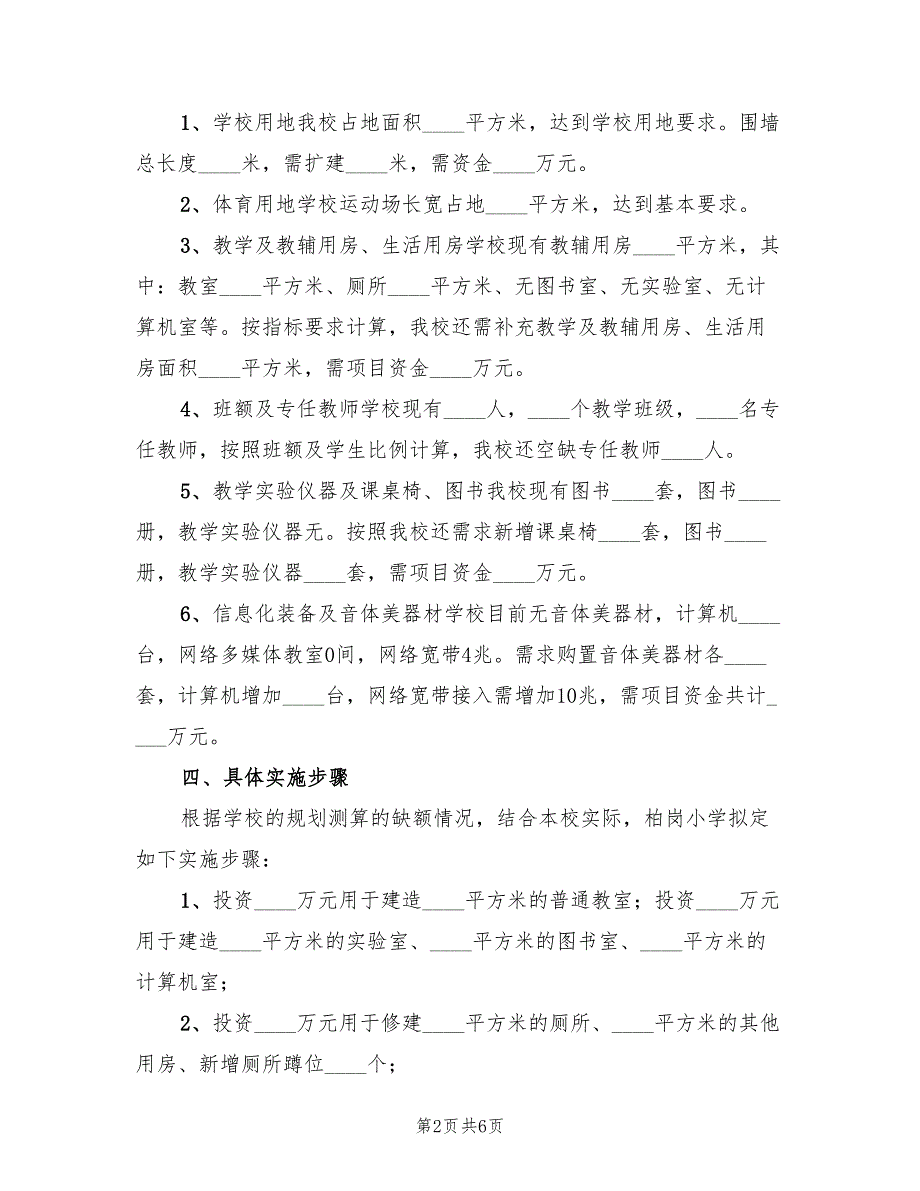 1、学校用地我校占地面积____平方米，达到学校用地要求。围墙
总长度____米，需扩建____米，需资金____万元。
2、体育用地学校运动场长宽占地____平方米，达到基本要求。
3、教学及教辅用房、生活用房学校现有教辅用房____平方米，其
中：教室____平方米、厕所____平方米、无图书室、无实验室、无计
算机室等。按指标要求计算，我校还需补充教学及教辅用房、生活用
房面积____平方米，需项目资金____万元。
4、班额及专任教师学校现有____人，____个教学班级，____名专
任教师，按照班额及学生比例计算，我校还空缺专任教师____人。
5、教学实验仪器及课桌椅、图书我校现有图书____套，图书____
册，教学实验仪器无。按照我校还需求新增课桌椅____套，图书____
册，教学实验仪器____套，需项目资金____万元。
6、信息化装备及音体美器材学校目前无音体美器材，计算机____
台，网络多媒体教室0间，网络宽带4兆。需求购置音体美器材各____
套，计算机增加____台，网络宽带接入需增加10兆，需项目资金共计_
___万元。
四、具体实施步骤
根据学校的规划测算的缺额情况，结合本校实际，柏岗小学拟定
如下实施步骤：
1、投资____万元用于建造____平方米的普通教室；投资____万元
用于建造____平方米的实验室、____平方米的图书室、____平方米的
计算机室；
2、投资____万元用于修建____平方米的厕所、____平方米的其他
用房、新增厕所蹲位____个；
第2页 共6页